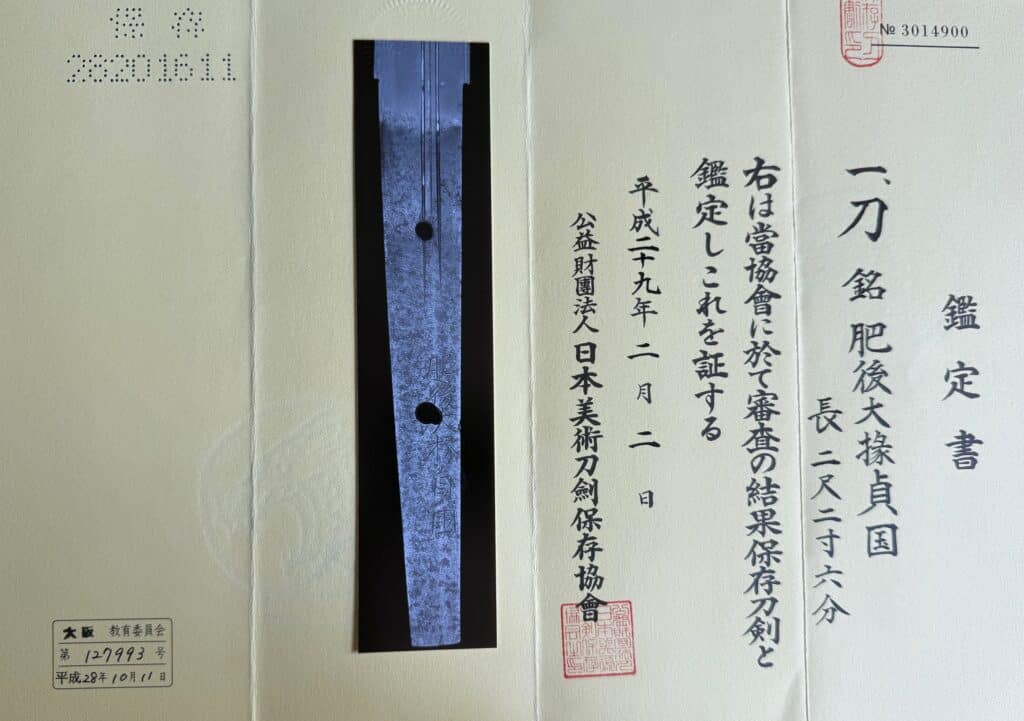 № 3014900
鑑定書
一、刀 銘 肥後大掾貞国
長 二尺二寸六分
右は當協會に於て審査の結果保存刀剣と
鑑定しこれを証する
平成二十九年 二月 二日
公益財團法人 日本美術刀劍保存協會
保存
28201611
大阪 教育委員会
第 127993 号
平成28年10月11日